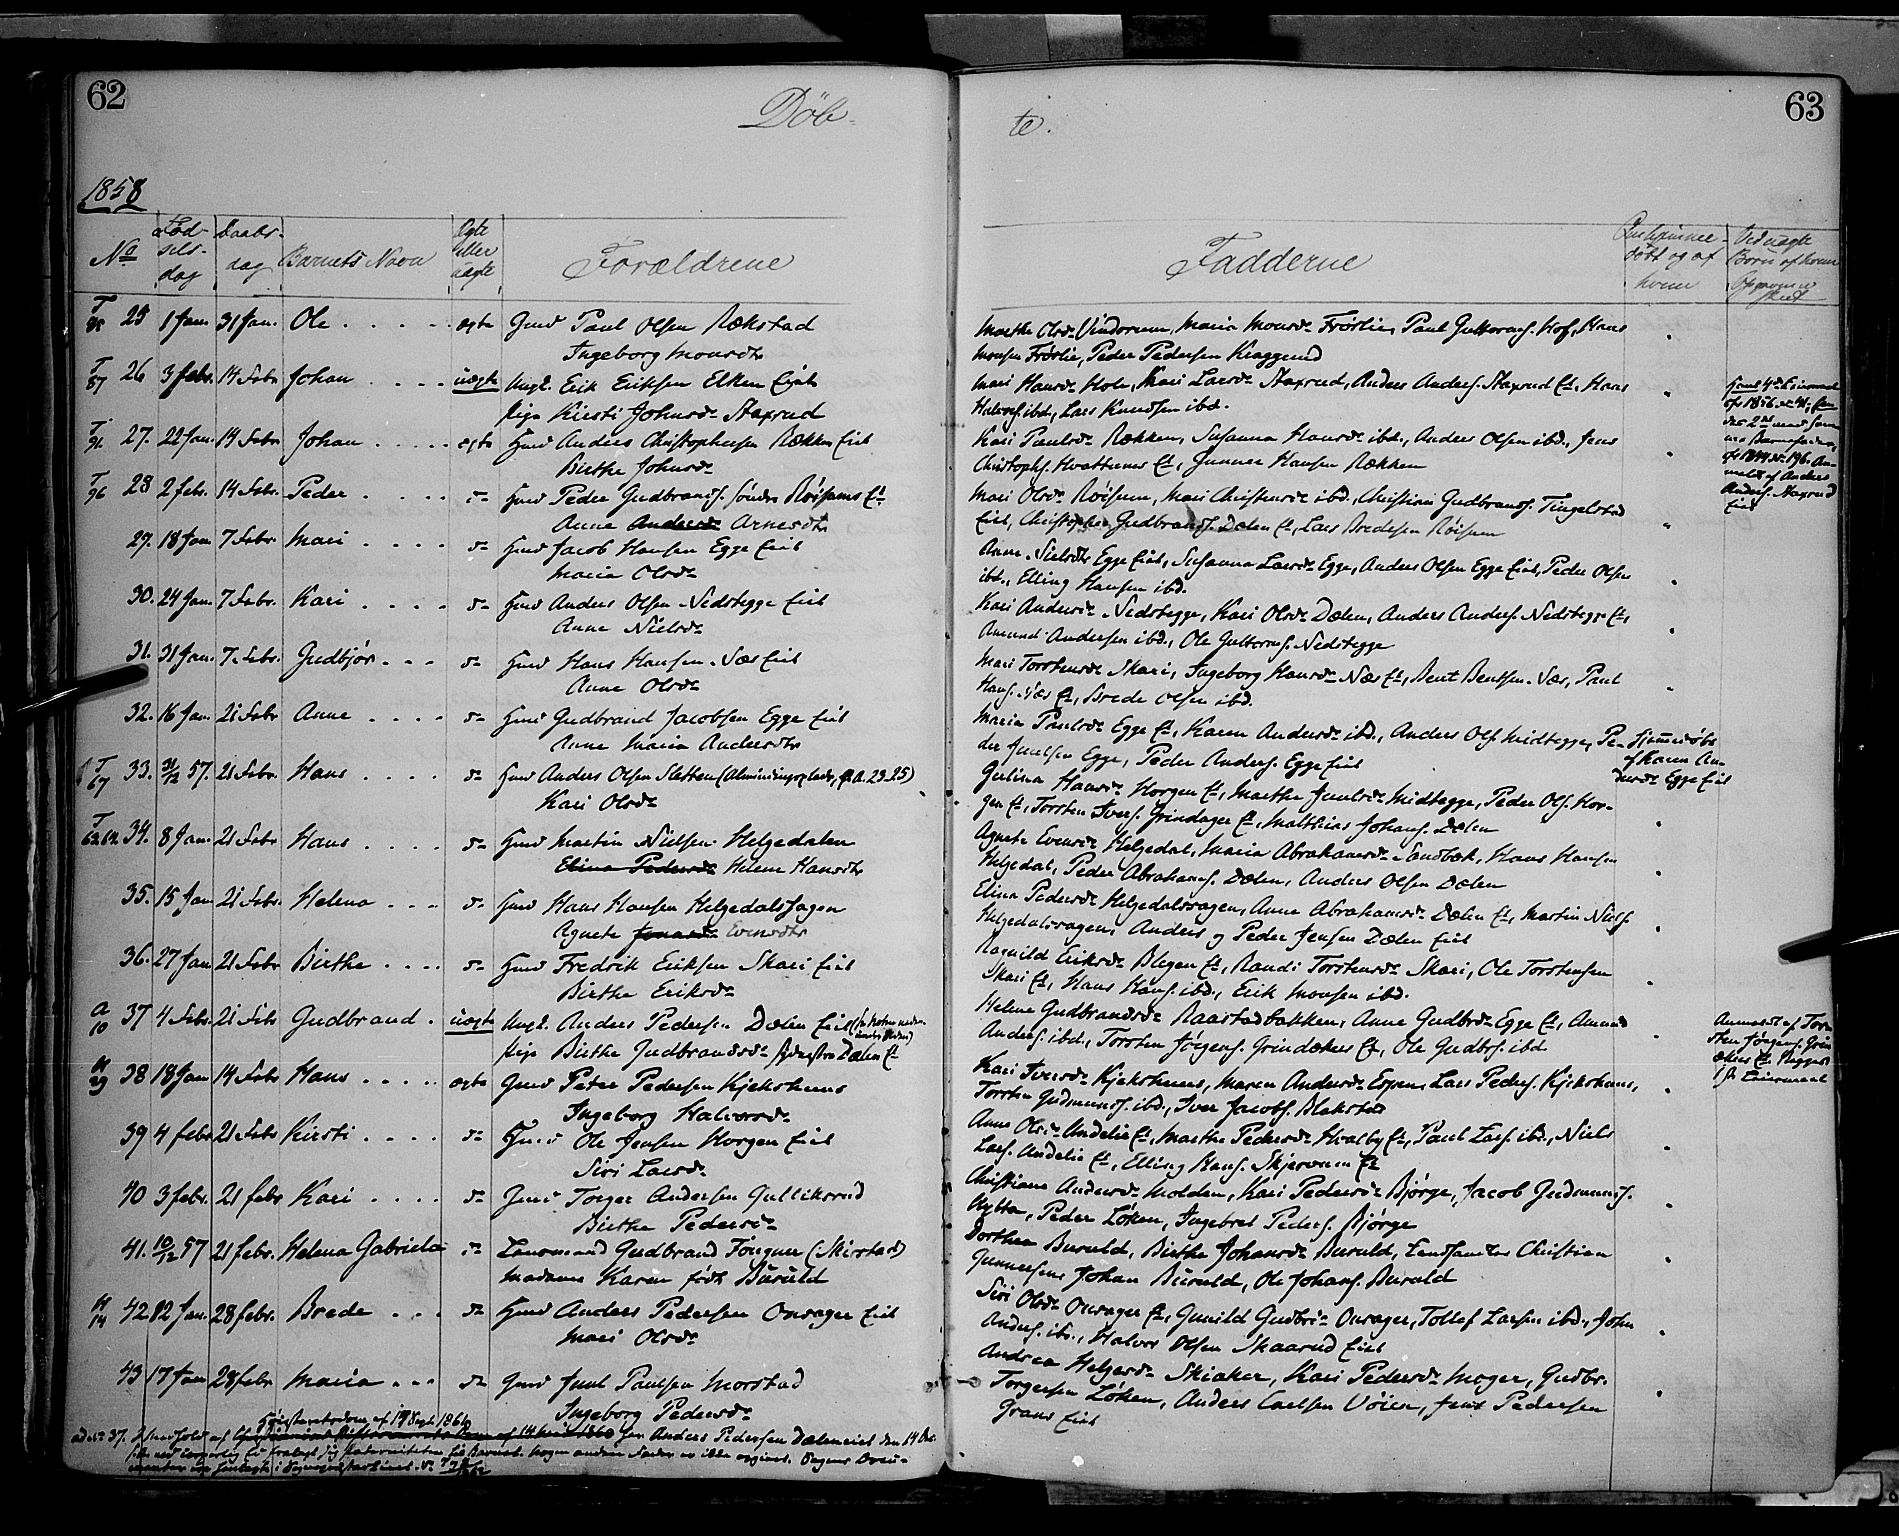 62
Døb-
1858
No
Fød-
sels-
dag
Daabs-
dag
Barnets Navn
Ægte
eller
uægte
Forældrene
25 1 Jan. 31 Jan. Ole . . . . ægte Gmd Paul Olsen Rækstad
Ingeborg Monsdtr
T
87 26 3 febr. 14 Febr Johan . . . . uægte Ungk. Erik Eriksen Elken Eiet
Pige Kirsti Johnsdr Staxrud
T
91 27. 22 Jan. 14 Febr Johan . . . . ægte Hmd Anders Christophersen Rækken Eiet
Birthe Johnsdr
T
96 28 2 febr. 14 Febr. Peder . . . . do Hmd Peder Gudbrands. søndre Røisums Et
Anne Andersdr Arnesdtr
29. 18 Jan 7 Febr. Mari . . . . do Hmd Jacob Hansen Egge Eiet
Maria Olsdr
30. 24 Jan. 7 Febr. Kari . . . . do Hmd Anders Olsen Nedstegge Eiet
Anne Nielsdr
31. 31 Jan. 7 Febr. Gudbjør . . . do Hmd Hans Hansen Næs Eiet
Anne Olsdr
32. 16 Jan. 21 Febr Anne . . . . do Hmd Gudbrand Jacobsen Egge Eiet
Anne Maria Andersdtr
T
67 33. 31/12 57. 21 Febr. Hans . . . . do Hmd Anders Olsen Sletten (Almindingsplads,
Kari Olsdr
34. 8 Jan. 21 Febr Hans . . . . do Hmd Martin Nielsen Helgedalen
Elina Pedersdr Helene Hansdtr
35. 15 Jan 21 Febr. Helena . . . do Hmd Hans Hansen Helgedalshagen
Agnete Evensdtr
36. 27 Jan 21 Febr Birthe . . . . do Hmd Fredrik Eriksen Skari Eiet
Birthe Eriksdr
37 4 Febr. 21 Febr Gudbrand . uægte Ungk. Anders Pedersen Dælen Eiet
Pige Birthe Gudbrandsdr Dælen Et
H
29 38 18 Jan 14 Febr Hans . . . . ægte Gmd Peter Pedersen Kjekshuus
Ingeborg Halvorsdr
39 4 febr 21 Febr Kirsti . . . . do Hmd Ole Jensen Horgen Eiet
Siri Larsdr
40 3 febr. 21 febr Kari . . . . do Gmd Torger Andersen Gulliksrud
Birthe Pedersdr
41. 10/12 57 21 febr. Helena Gabriela do Lensmand Gudbrand Tongner (Skirstad)
Madame Karen født Büruld
H
14 42 12 Jan. 28 febr. Brede . . . do Hmd Anders Pedersen Onsager Eiet
Mari Olsdr
43 17 Jan 28 febr Maria . . . do Gmd Juul Paulsen Morstad
Ingeborg Pedersdr
Høiesteretsdom af 17 Sept. 1861
ad No 37. Ifhenhold af
63
te.
Fadderne
døbt og af
hvem
Ved uægte
Børn af hvem
Opgivelsen er
skeet
Marthe Olsdr Vindorum, Maria Monsdr Frøslie, Paul Guttorms. Hof, Hans
Monsen Frøslie, Peder Pedersen Kraggerud
Mari Hansdr Hole, Kari Larsdr Staxrud, Anders Anders. Staxrud Et, Hans
Halvors. ibd., Lars Knudsen ibd.
Kari Paulsdr Rækken, Susanna Hansdr ibd., Anders Olsen ibd., Jens
Christophs. Hvattumes Et, Gunner Hansen Rækken
Mari Olsdr Røisum, Mari Christensdr ibd., Christian Gudbrands. Tingelstad
Eiet, Christopher Gudbrands. Dælen Et, Lars Bredesen Røisum
Anne Nielsdtr Egge Eiet, Susanna Larsdr Egge, Anders Olsen Egge Eiet, Peder Olsen
ibd., Elling Hansen ibd.
Kari Andersdr Nedstegge, Kari Olsdr Dælen, Anders Anders. Nedstegge Et,
Amund Andersen ibd., Ole Guttorms. Nedstegge
Mari Torstensdr Skari, Ingeborg Hansdr Næs Et, Bent Bentsen Næs, Paul
Hans. Næs Et, Brede Olsen ibd.
Maria Paulsdr Egge Et, Karen Andersdr ibd., Anders Ols. Midtegge, Pe-
der Juulsen Egge, Peder Anders. Egge Eiet
Hjemmedøbt
af Karen An-
dersdr Egge Eiet
Gulina Hansdr Horgen Et, Marthe Juulsdr Midtegge, Peder Ols. Hor-
gen Et, Torsten Ivers. Grindager Et, Matthias Johans. Dælen
Agnete Evensdr Helgedal, Maria Abrahamsdr Sandbæk, Hans Hansen
Helgedal, Peder Abrahams. Dælen, Anders Olsen Dælen
Elina Pedersdr Helgedalshagen, Anne Abrahamsdr Dælen Et, Martin Niels.
Helgedalshagen, Anders og Peder Jensen Dælen Eiet
Ragnild Eriksdr Blegen Et, Randi Torstensdr Skari, Ole Torstensen
Skari Et, Hans Hans. ibd., Erik Monsen ibd.
Helene Gudbrandsdr Raastadbakken, Anne Gudbrdr Egge Et, Amund
Anders. ibd., Torsten Jørgens. Grindakers Et, Ole Gudbrs. ibd
Anmeldt af Tor-
sten Jørgens. Grin-
akers Et. Begges
1ste Leiermaal
Kari Iversdr Kjekshuus, Maren Andersdr Espen, Lars Peders. Kjekshuus,
Torsten Gudmunds. ibd., Iver Jacobs. Blakstad
Anne Olsdr Andelie Et, Marthe Pedersdr Hvalby Et, Paul Lars. ibd., Niels
Lars. Andelie Et, Elling Hans. Skjervum Et
Christiane Andersdr Molden, Kari Pedersdr Bjørge, Jacob Gudmunds.
Hytta, Peder Løken, Ingebret Peders. Bjørge
Dorthea Buruld, Birthe Johansdr Buruld, Landhandler Christian
Gunnersen, Johan Büruld, Ole Johans. Buruld
Siri Olsdr Onsager Et, Gunild Gudbrdr Onsager, Tollef Larsen ibd., John
Anders. ibd., Halvor Olsen Skaarud Eiet
Andrea Helgesdr Skiaker, Kari Pedersdr Moger, Gudbr.
Torgersen Løken, Anders Carlsen Vøien, Juul Pedersen
Grans Eiet